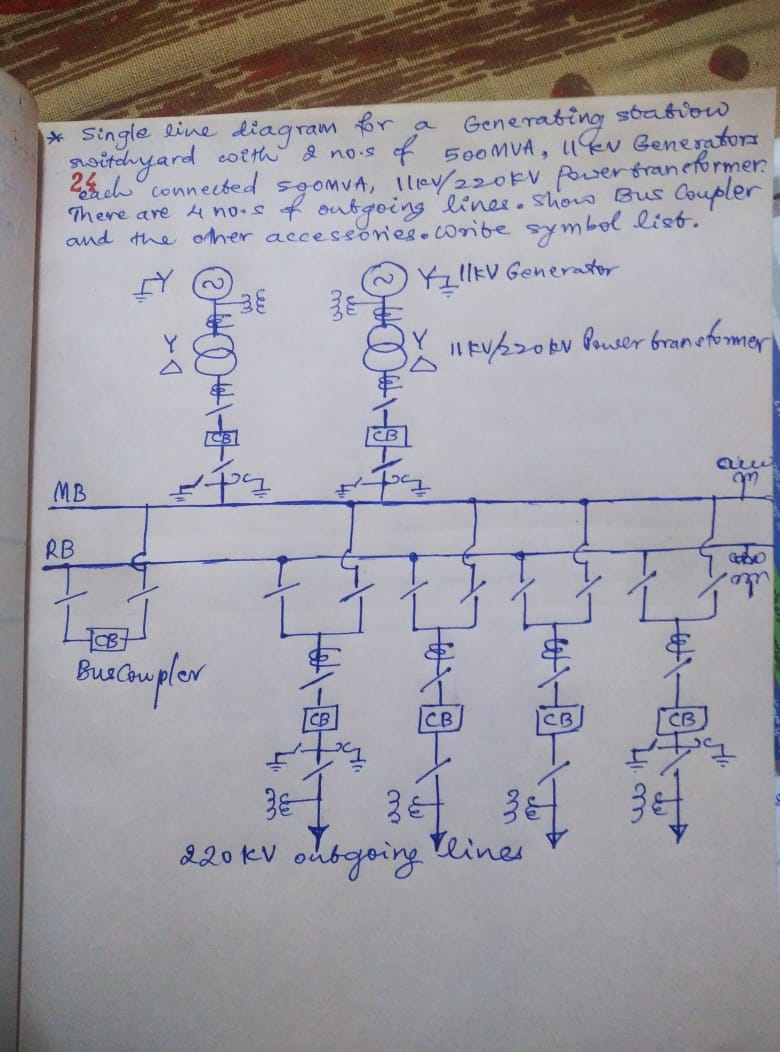 * Single line diagram for a Generating station
switchyard with 2 no.s of 500MVA, 11kV Generators
24
each connected 500MVA, 11kV/220kV Power transformer.
There are 4 no.s of outgoing lines. Show Bus Coupler
and the other accessories. Write symbol list.
Y ~ ~ Y 11kV Generator
Y Δ Y Δ 11kV/220kV Power transformer
CB CB
MB
RB
CB
Bus Coupler
CB CB CB CB
220kV outgoing lines